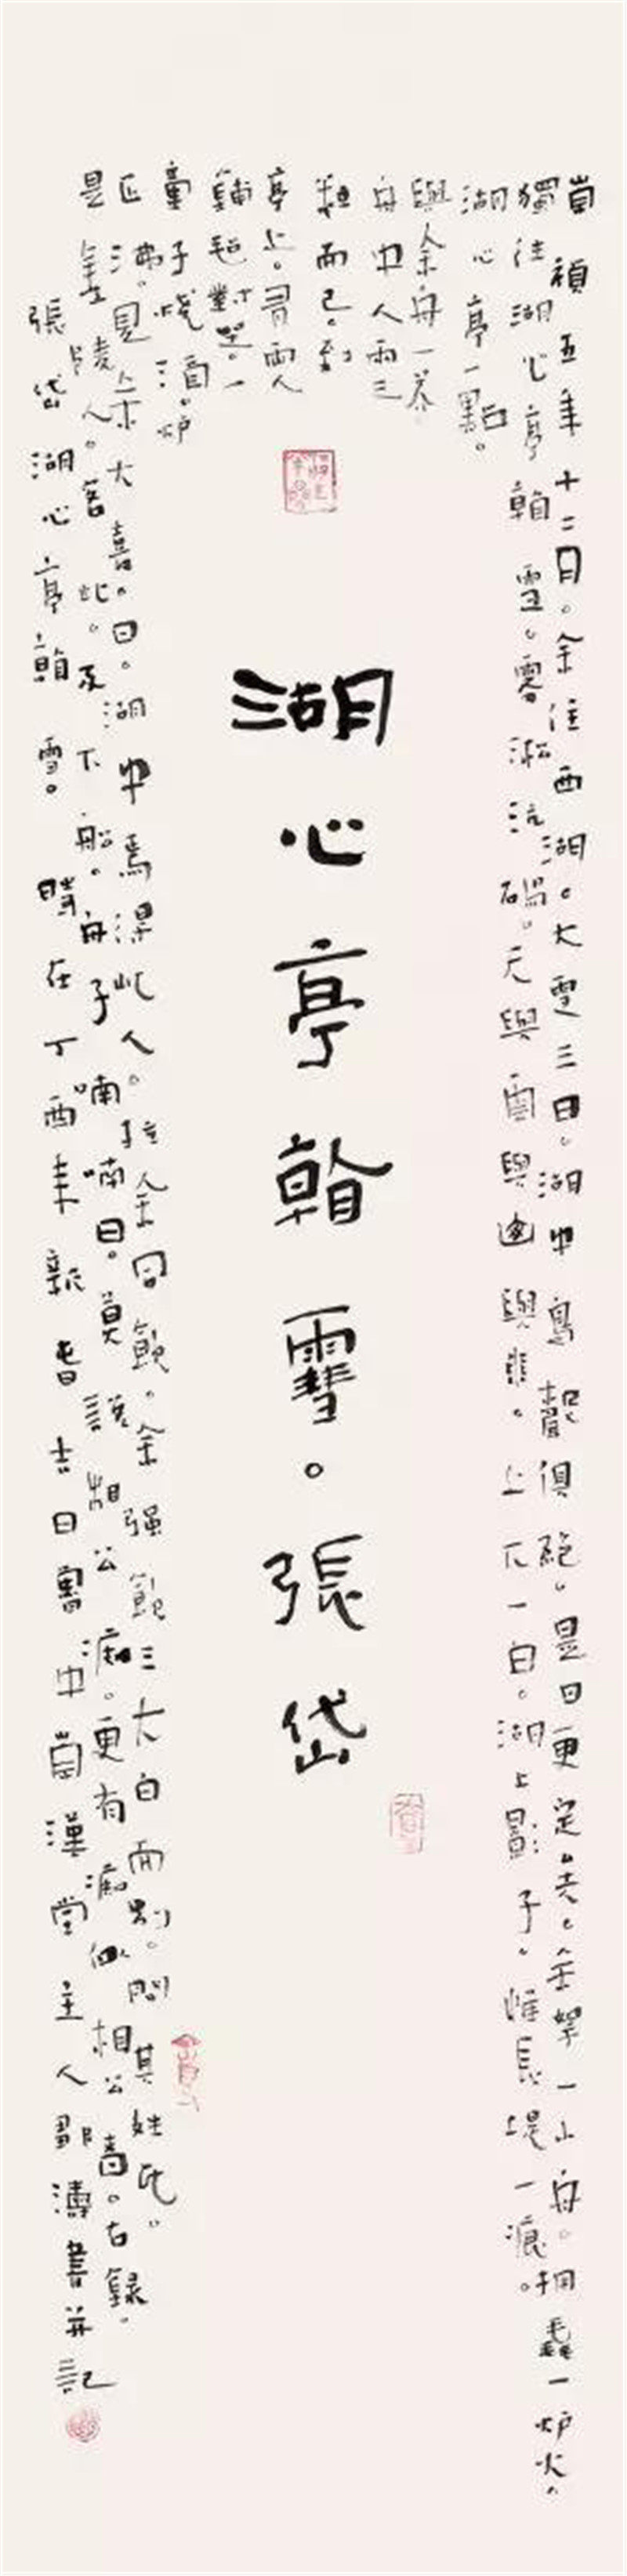 崇禎五年十二月。余住西湖。大雪三日。湖中鳥聲俱絕。是日更定矣。余拏一小舟。擁毳一爐火。
獨往湖心亭看雪。霧淞沆碭。天與雲與山與水。上下一白。湖上影子。惟長堤一痕。
湖心亭一點。
與余舟一芥。
舟中人兩三
粒而已。到
亭上。有兩人
鋪氈對坐。一
童子燒酒。爐
正沸。見余大喜。曰。湖中焉得此人。拉余同飲。余強飲三大白而別。問其姓氏。
是金陵人。客此。及下船。舟子喃喃曰。莫說相公癡。更有癡似相公者。右錄。
張岱湖心亭看雪。時在丁酉年新春吉日蜀中崇漢堂主人鄒濤書并記
湖心亭看雪。張岱